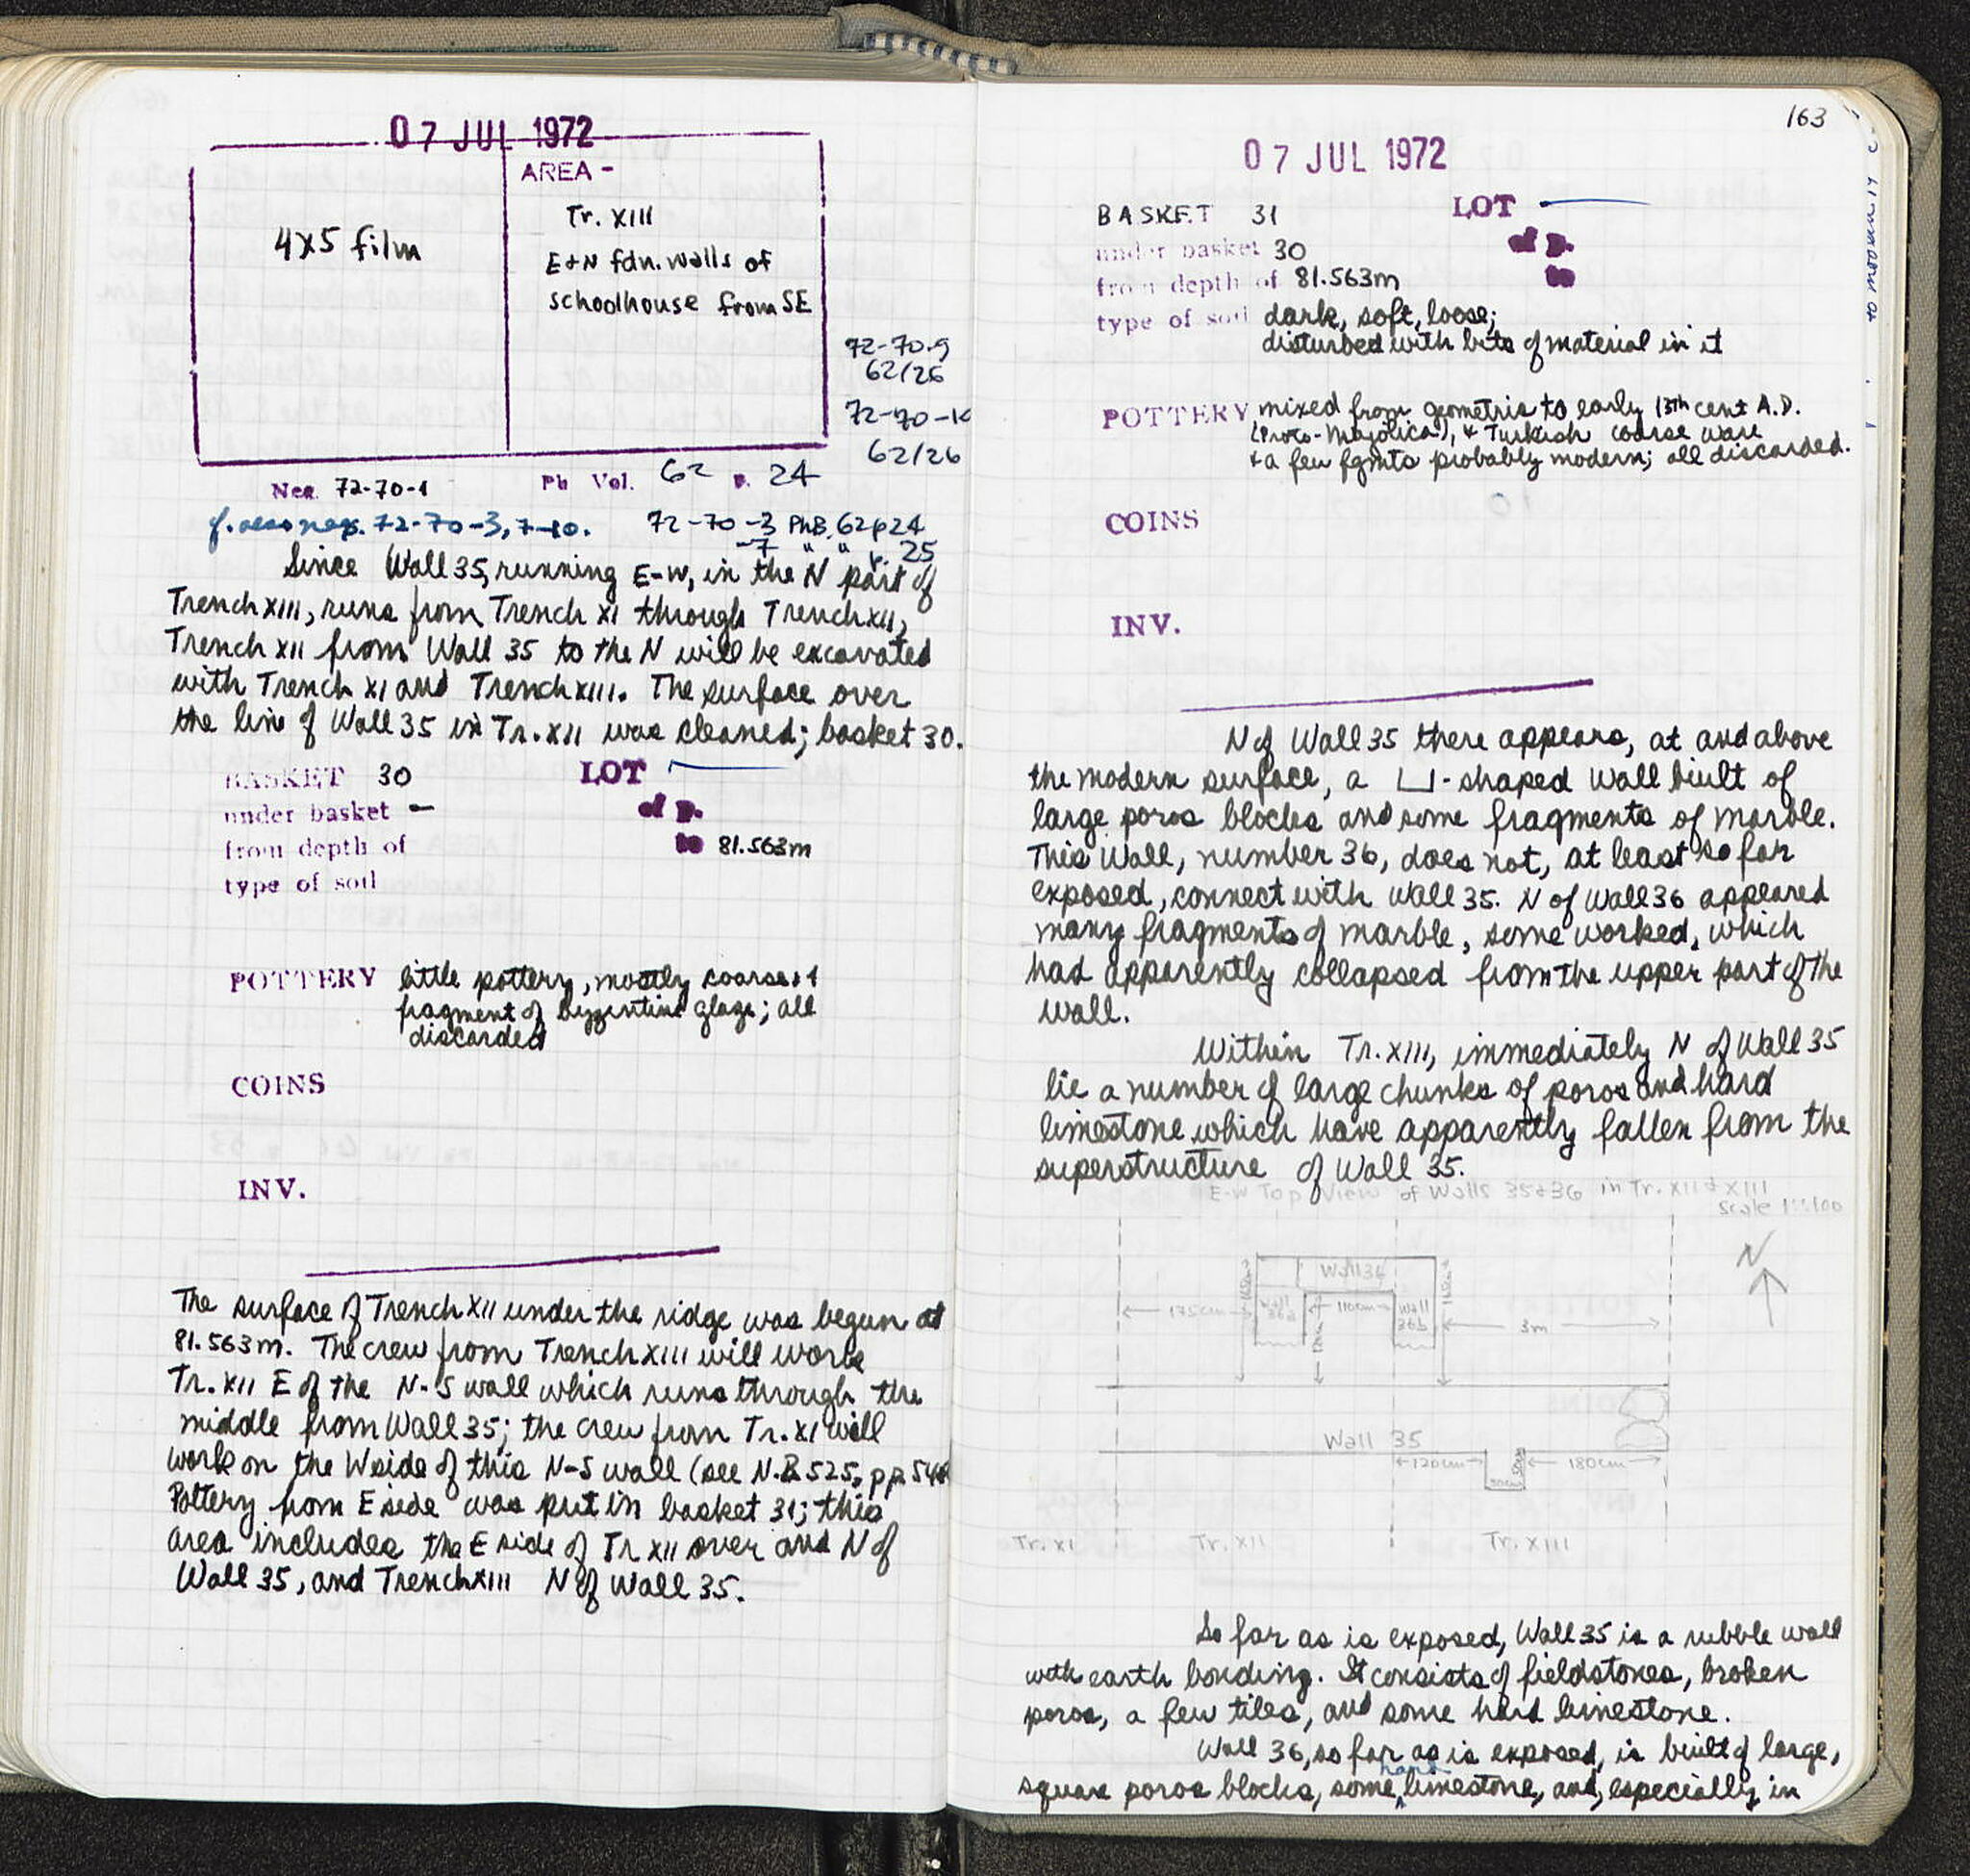 07 JUL 1972
AREA -
4x5 film
Tr. XIII
E+N fdn. walls of
schoolhouse from SE
72-70-9
62/25
72-70-10
62/26
Neg. 72-70-1
Ph Vol. 62 p. 24
cf. also negs. 72-70-3, 7-10.
72-70-3 PhB. 62p24
-7 " " p. 25
Since Wall 35, running E-W, in the N part of
Trench XIII, runs from Trench XI through Trench XII,
Trench XII from Wall 35 to the N will be excavated
with Trench XI and Trench XIII. The surface over
the line of Wall 35 in Tr. XII was cleaned; basket 30.
BASKET 30
LOT
under basket —
of p.
from depth of
to 81.563m
type of soil
POTTERY little pottery, mostly coarse; 1
fragment of Byzantine glaze; all
discarded
COINS
INV.
The surface of Trench XII under the ridge was begun at
81.563m. The crew from Trench XIII will work
Tr. XII E of the N-S wall which runs through the
middle from Wall 35; the crew from Tr. XI will
work on the W side of this N-S wall (see N.B. 525, pp. 54
Pottery from E side was put in basket 31; this
area includes the E side of Tr XII over and N of
Wall 35, and Trench XIII N of Wall 35.
163
07 JUL 1972
BASKET 31
LOT
under basket 30
of p.
from depth of 81.563m
to
type of soil dark, soft, loose;
disturbed with bits of material in it
POTTERY mixed from geometric to early 13th cent A.D.
(Proto-Majolica), + Turkish coarse ware
+ a few fgmts probably modern; all discarded.
COINS
INV.
N of Wall 35 there appears, at and above
the modern surface, a ⊔-shaped wall built of
large poros blocks and some fragments of marble.
This wall, number 36, does not, at least so far
exposed, connect with Wall 35. N of Wall 36 appeared
many fragments of marble, some worked, which
had apparently collapsed from the upper part of the
wall.
Within Tr. XIII, immediately N of Wall 35
lie a number of large chunks of poros and hard
limestone which have apparently fallen from the
superstructure of Wall 35.
E-W Top View of Walls 35+36 in Tr. XII + XIII
Scale 1:100
N
Wall 36
175cm
110cm
Wall
36b
3m
Wall 35
120cm
180cm
Tr. XI
Tr. XII
Tr. XIII
So far as is exposed, Wall 35 is a rubble wall
with earth bonding. It consists of fieldstones, broken
poros, a few tiles, and some hard limestone.
Wall 36, so far as is exposed, is built of large,
square poros blocks, some hard limestone, and, especially in